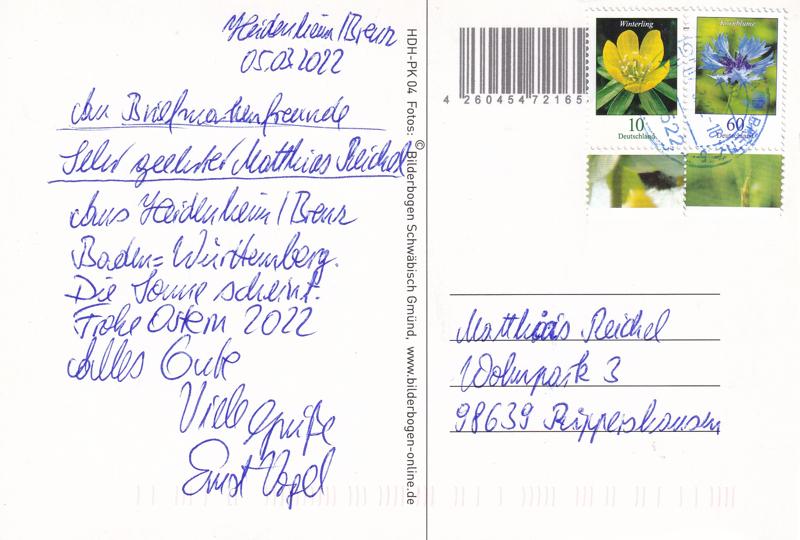 Heidenheim/Brenz
05.03.2022
An Briefmarkenfreunde
Sehr geehrter Matthias Reichel
Aus Heidenheim/Brenz
Baden=Württemberg.
Die Sonne scheint.
Frohe Ostern 2022
Alles Gute
Viele Grüße
Ernst Vogel
HDH-PK 04 Fotos: © Bilderbogen Schwäbisch Gmünd, www.bilderbogen-online.de
4 260454 72165
Winterling
10
Deutschland
Kornblume
60
Deutschland
Matthias Reichel
Wohnpark 3
98639 Rippershausen